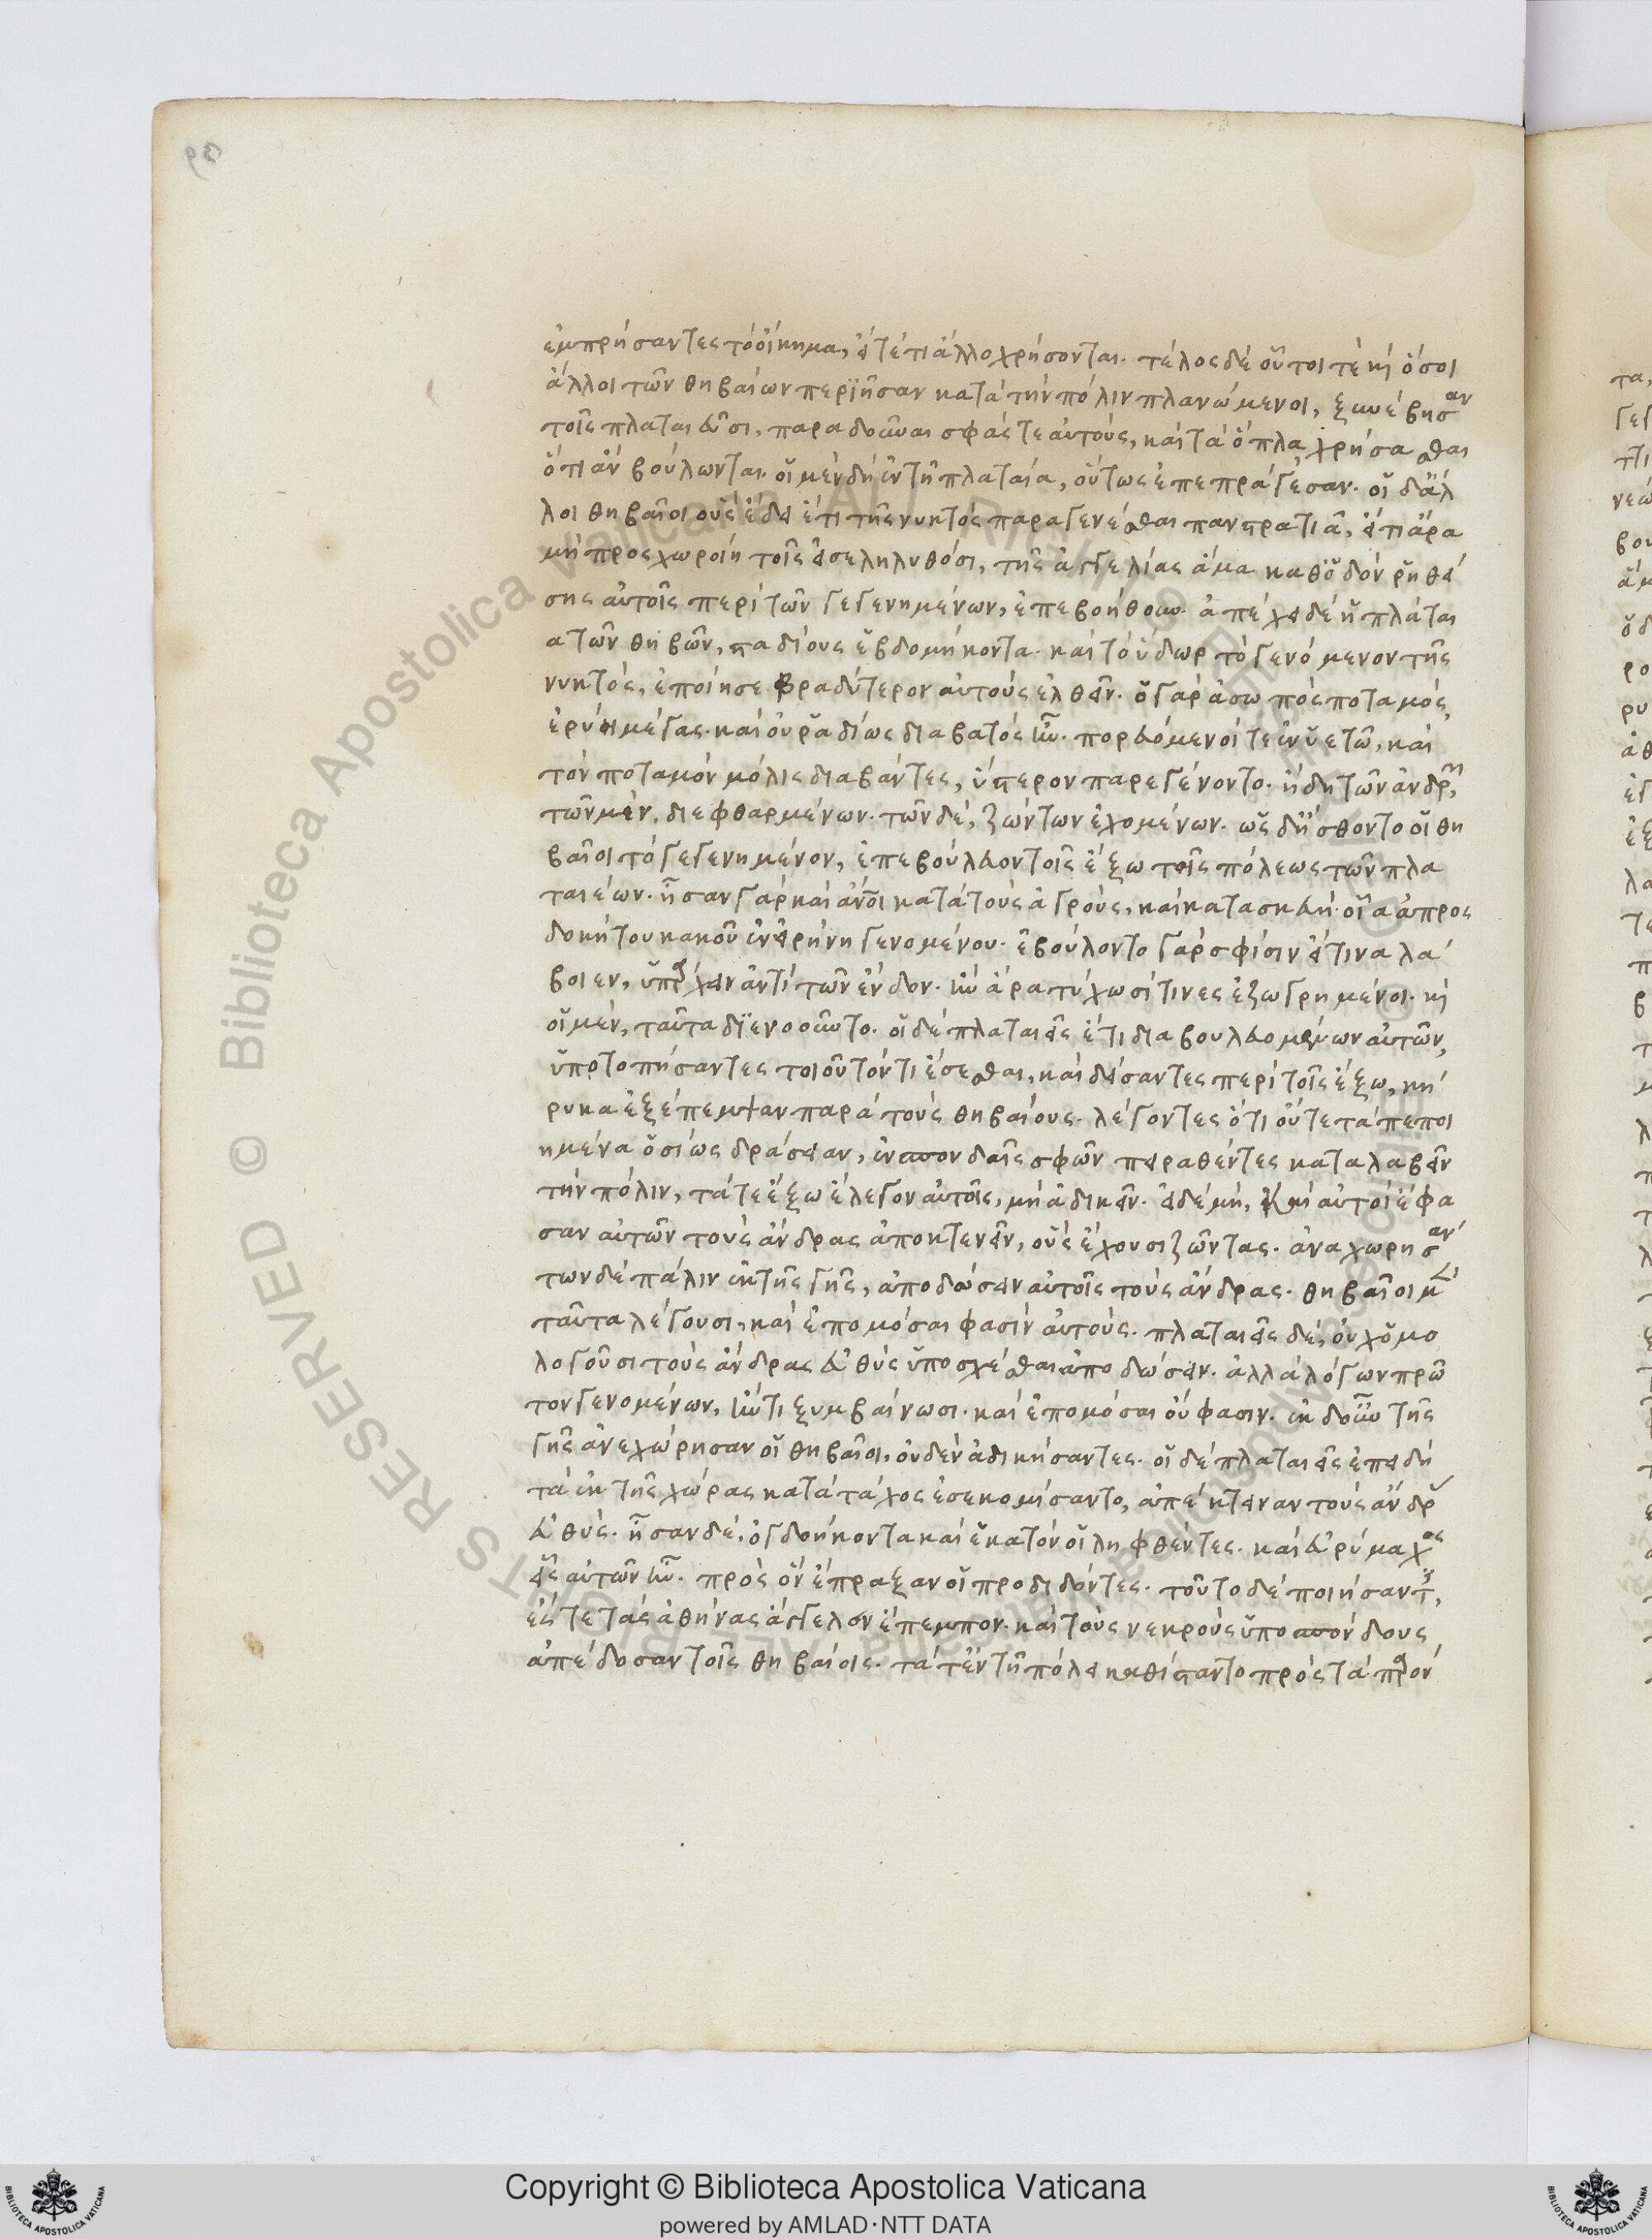 ἐμπρήσαντες τὸ οἴκημα, εἴτε τι ἄλλο χρήσονται. τέλος δὲ οὗτοί τε κὶ ὅσοι
ἄλλοι τῶν θηβαίων περιῆσαν κατὰ τὴν πόλιν πλανώμενοι, ξυνέβησαν
τοῖς πλαταιεῦσι, παραδοῦναι σφᾶς τε αὐτοὺς, καὶ τὰ ὅπλα χρήσασθαι
ὅτι ἂν βούλωνται. οἱ μὲν δὴ ἐν τῇ πλαταία, οὕτως ἐπεπράγεσαν. οἱ δ' ἄλ
λοι θηβαῖοι οὓς ἔδει ἔτι τῆς νυκτὸς παραγενέσθαι πανστρατιᾶ, εἴ τι ἄρα
μὴ προσχωροίη τοῖς εἰσεληλυθόσι, τῆς ἀγγελίας ἅμα καθ' ὁδὸν ῥηθεί
σης αὐτοῖς περὶ τῶν γεγενημένων, ἐπεβοήθουν. ἀπέχει δὲ ἡ πλάται
α τῶν θηβῶν, σταδίους ἑβδομήκοντα. καὶ τὸ ὕδωρ τὸ γενόμενον τῆς
νυκτὸς, ἐποίησε βραδύτερον αὐτοὺς ἐλθεῖν. ὁ γὰρ ἀσωπὸς ποταμὸς,
ἐρύη μέγας. καὶ οὐ ῥαδίως διαβατὸς ἦν. πορευόμενοί τε ἐν ὑετῶ, καὶ
τὸν ποταμὸν μόλις διαβάντες, ὕστερον παρεγένοντο. ἤδη τῶν ἀνδρῶν
τῶν μὲν, διεφθαρμένων. τῶν δὲ, ζώντων ἐχομένων. ὡς δ' ἤσθοντο οἱ θη
βαῖοι τὸ γεγενημένον, ἐπεβούλευον τοῖς ἔξω τῆς πόλεως τῶν πλα
ταιέων. ἦσαν γὰρ καὶ ἄνοι κατὰ τοὺς ἀγροὺς, καὶ κατασκευή. οἷα ἀπροσ
δοκήτου κακοῦ ἐν εἰρήνη γενομένου. ἐβούλοντο γάρ σφίσιν εἴ τινα λά
βοιεν, ὑπάρχειν ἀντὶ τῶν ἔνδον. ἢν ἄρα τύχωσί τινες ἐζωγρημένοι. κὶ
οἱ μὲν, ταῦτα διενοοῦντο. οἱ δὲ πλαταιεῖς ἔτι διαβουλευομένων αὐτῶν,
ὑποτοπήσαντες τοιοῦτόν τι ἔσεσθαι, καὶ δείσαντες περὶ τοῖς ἔξω, κή
ρυκα ἐξέπεμψαν παρὰ τοὺς θηβαίους. λέγοντες ὅτι οὔτε τὰ πεποι
ημένα ὁσίως δράσειαν, ἐν σπονδαῖς σφῶν πειραθέντες καταλαβεῖν
τὴν πόλιν, τά τε ἔξω ἔλεγον αὐτοῖς, μὴ ἀδικεῖν. εἰ δὲ μὴ, καὶ αὐτοὶ ἔφα
σαν αὐτῶν τοὺς ἄνδρας ἀποκτενεῖν, οὓς ἔχουσι ζῶντας. ἀναχωρησάν
των δὲ πάλιν ἐκ τῆς γῆς, ἀποδώσειν αὐτοῖς τοὺς ἄνδρας. θηβαῖοι μὲν
ταῦτα λέγουσι, καὶ ἐπομόσαι φασὶν αὐτούς. πλαταιεῖς δὲ, οὐχ ὁμο
λογοῦσι τοὺς ἄνδρας εὐθὺς ὑποσχέσθαι ἀποδώσειν. ἀλλὰ λόγων πρῶ
τον γενομένων, ἤν τι ξυμβαίνωσι. καὶ ἐπομόσαι οὔ φασιν. ἐκ δ' οὖν τῆς
γῆς ἀνεχώρησαν οἱ θηβαῖοι, οὐδὲν ἀδικήσαντες. οἱ δὲ πλαταιεῖς ἐπειδὴ
τὰ ἐκ τῆς χώρας κατὰ τάχος ἐσεκομίσαντο, ἀπέκτειναν τοὺς ἄνδρας
εὐθύς. ἦσαν δὲ, ὀγδοήκοντα καὶ ἑκατὸν οἱ ληφθέντες. καὶ εὐρύμαχος
εἷς αὐτῶν ἦν. πρὸς ὃν ἔπραξαν οἱ προδιδόντες. τοῦτο δὲ ποιήσαντες,
ἔς τε τὰς ἀθήνας ἄγγελον ἔπεμπον. καὶ τοὺς νεκροὺς ὑποσπόνδους
ἀπέδοσαν τοῖς θηβαίοις. τά τ' ἐν τῇ πόλει καθίσταντο πρὸς τὰ παρόν
Copyright © Biblioteca Apostolica Vaticana
powered by AMLAD·NTT DATA